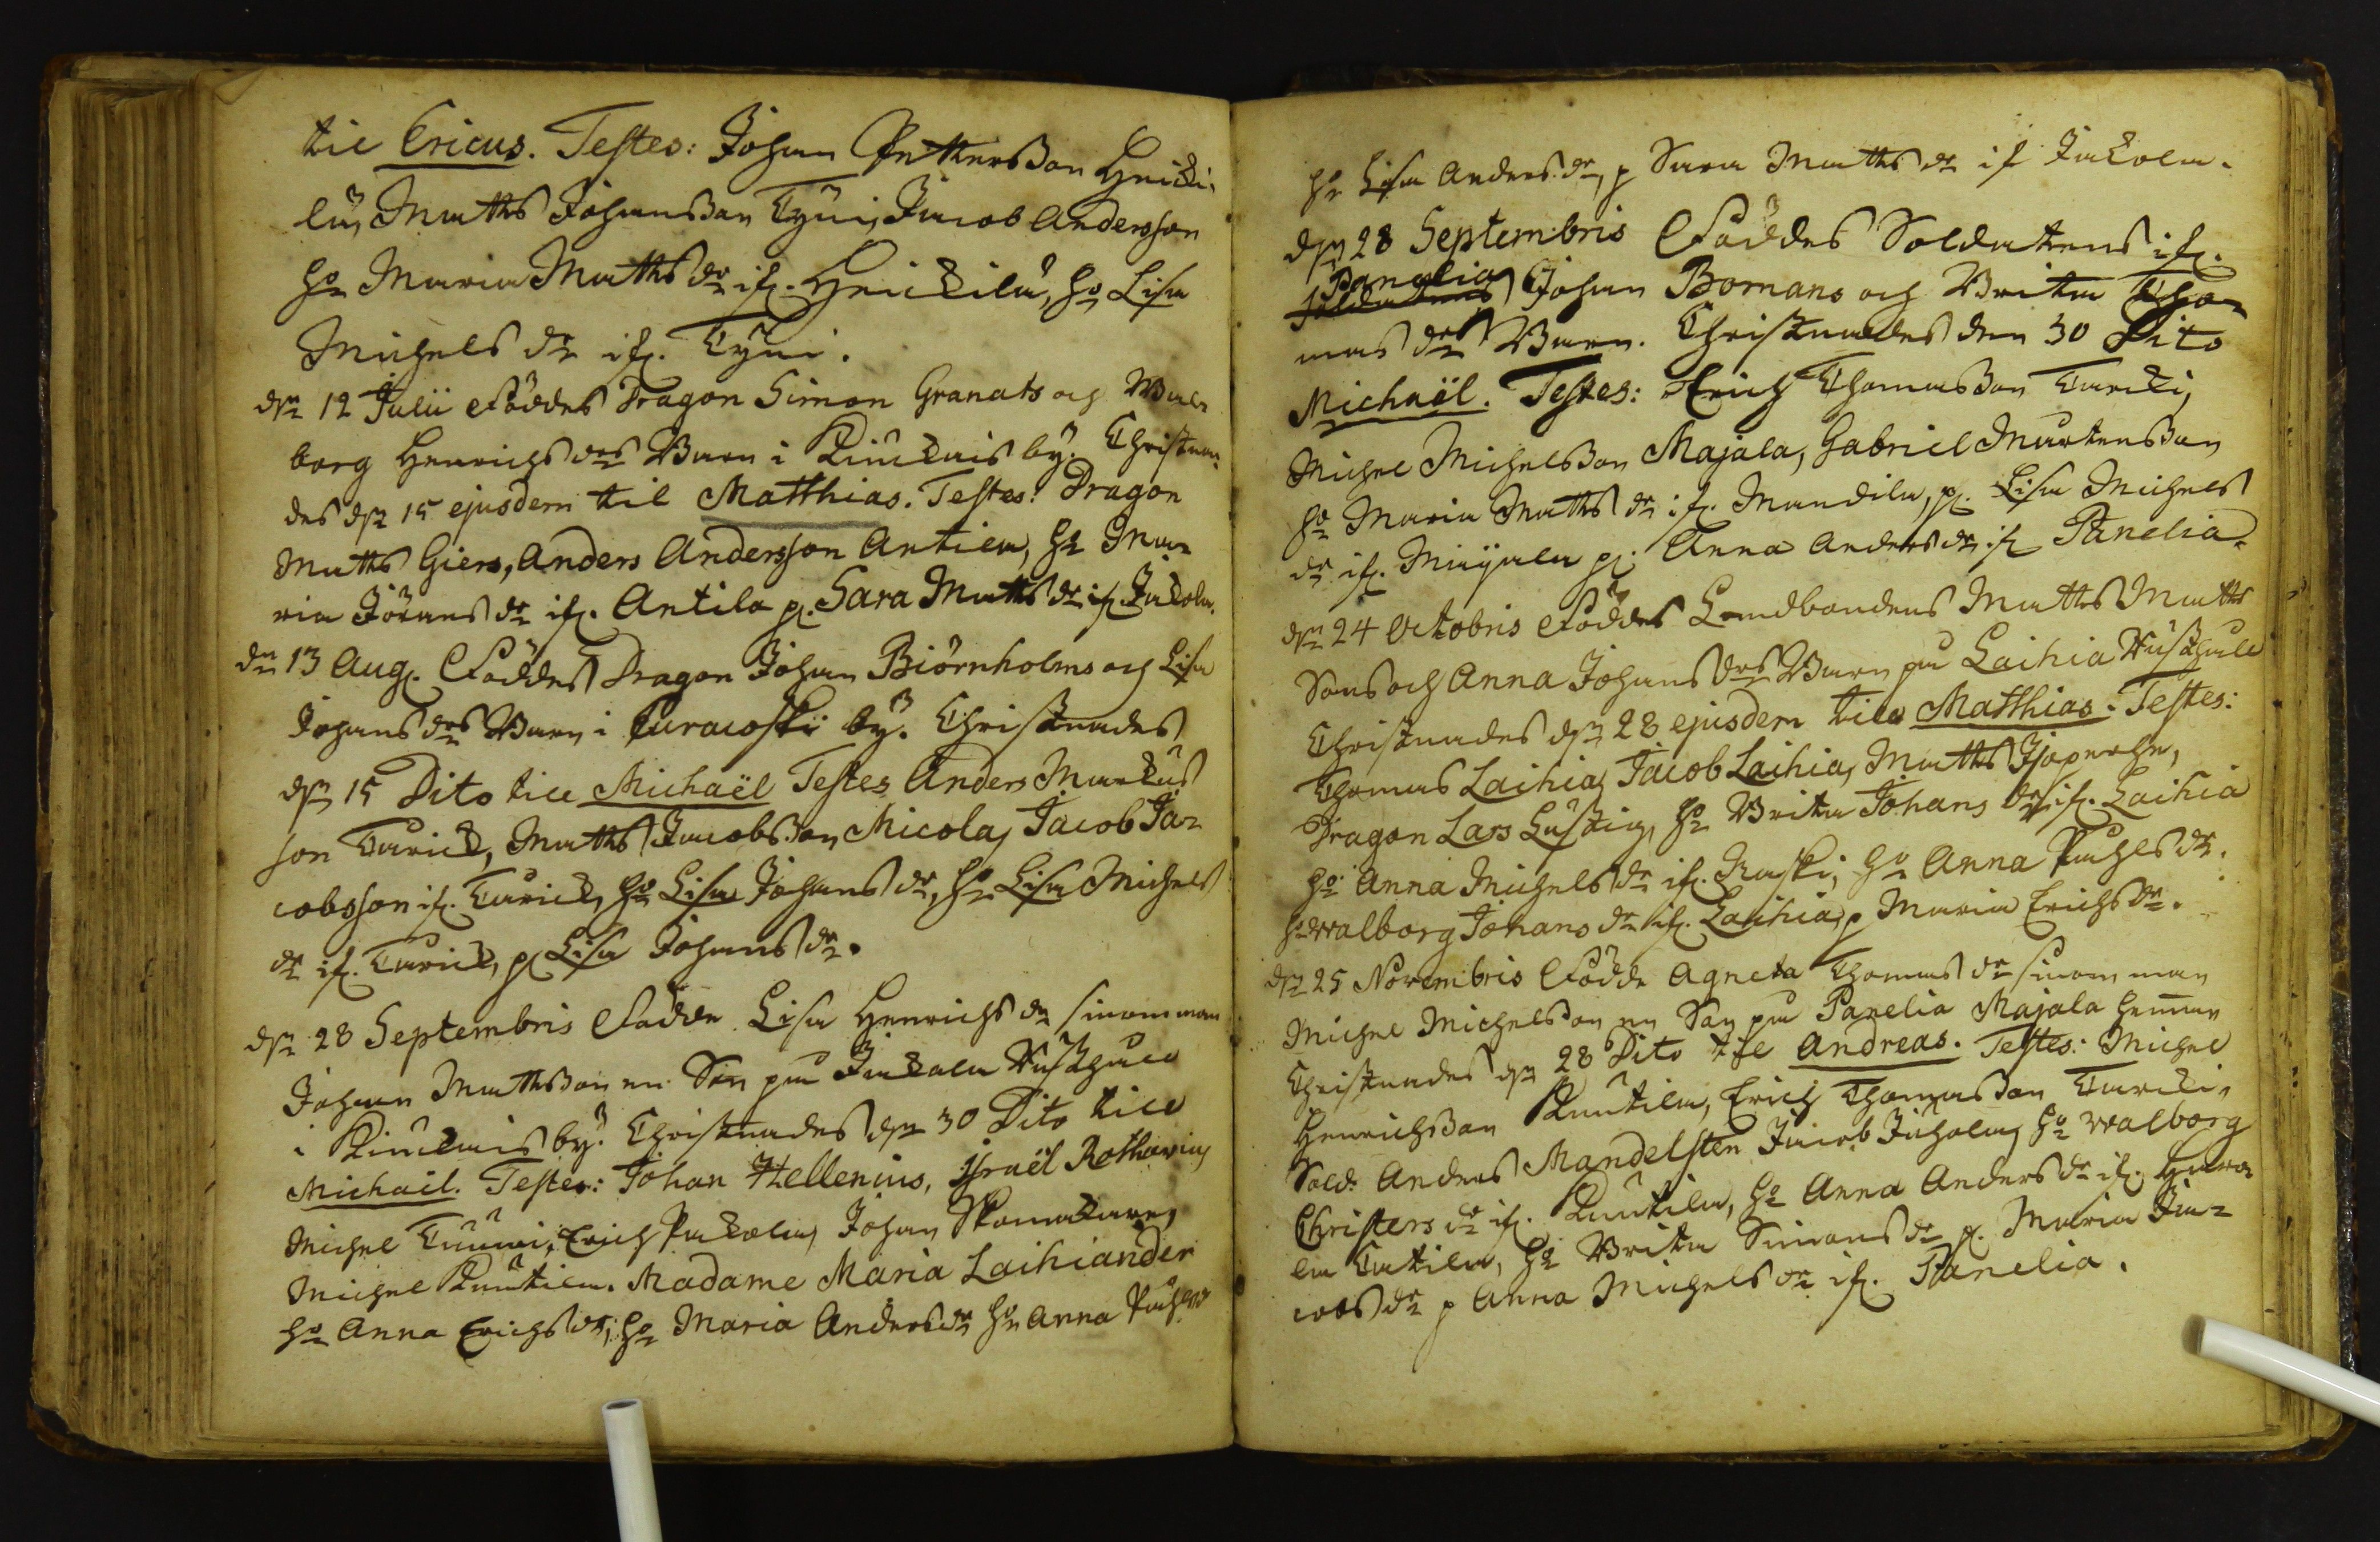 til Ericus. Testes: Johan Pettersson Heicki-
lä, Matts Johansson Tyni, Jacob Andersson
ho Maria Matts dr if. Heickilä, ho Lisa
Michels dr if. Tyni.
dn 12 Julii föddes Dragon Simon Granats och Wal-
borg Henrichs drs Barn i Kiuckais by. Christna-
des dn 15 ejusdem til Matthias. Testes: Dragon
Matts Giers, Anders Andersson Antila, ho Ma-
ria Jörans dr if. Antila p. Sara Matts dr if Jakola.
dn 13 Aug. Föddes Dragon Johan Biörnholms och Lisa
Johans drs Barn i Euracoski by. Christnades
dn 15 Dito till Michaël Testes Anders Markus
son Turick, Matts Jacobsson Micola, Jacob Ja-
cobsson if. Turick, ho Lisa Johans dr, ho Lisa Michels
dr if. Turick, p. Lisa Johans dr.
dn 28 Septembris Födde Lisa Henrichs dr sinom man
Johan Mathsson en Son på Jakola Rusthåll
i Kiuckais by. Christnades dn 30 Dito till
Michaël. Testes: Johan Hellenius, Israël Rothovius
Michel Tuuri, Erich Pakola, Johan Skomakare,
Michel Kuutila. Madame Maria Laihiander
ho Anna Erichs dr, ho Maria Anders dr ho Anna Påhls dr
ho Lisa Anders dr, p Sara Matts dr if Jakola.
dn 28 Septembris Föddes Soldatens if.
Panelia Johan Bomans och Brita Tho-
mas drs Barn. Christnades den 30 Dito
Michaël. Testes: Erich Thomasson Turcki,
Michel Michelsson Majala, Gabriel Mårtensson
ho Maria Matts dr if. Mandila, p. Lisa Michels
dr if. Majala p. Anna Anders dr if Panelia.
dn 24 Octobris Föddes Landbondens Matts Matts
Sons och Anna Johans drs Barn på Laihia Rusthåll
Christnades dn 28 ejusdem till Matthias. Testes:
Thomas Laihia, Jacob Laihia, Matts
Dragon Lars Lustig, ho Brita Johans dr if. Laihia
ho Anna Michels dr if. Raski, ho Anna Påhls dr.
ho Walborg Johans dr if. Laihia, p Maria Erichs dr.
dn 25 Novembris Födde Agneta Thomas dr sinom man
Michel Michelsson en Son på Panelia Majala heman
Christnades dn 28 Dito till Andreas. Testes: Michel
Henrichsson Kuutila, Erich Thomasson Turcki,
Sold: Anders Mandelsten Jacob Juhola, ho Walborg
Christers dr if. Kuutila, ho Anna Anders dr if.
la Tatila, ho Brita Simons dr p. Maria Ja-
cobs dr p Anna Michels dr if. Panelia.